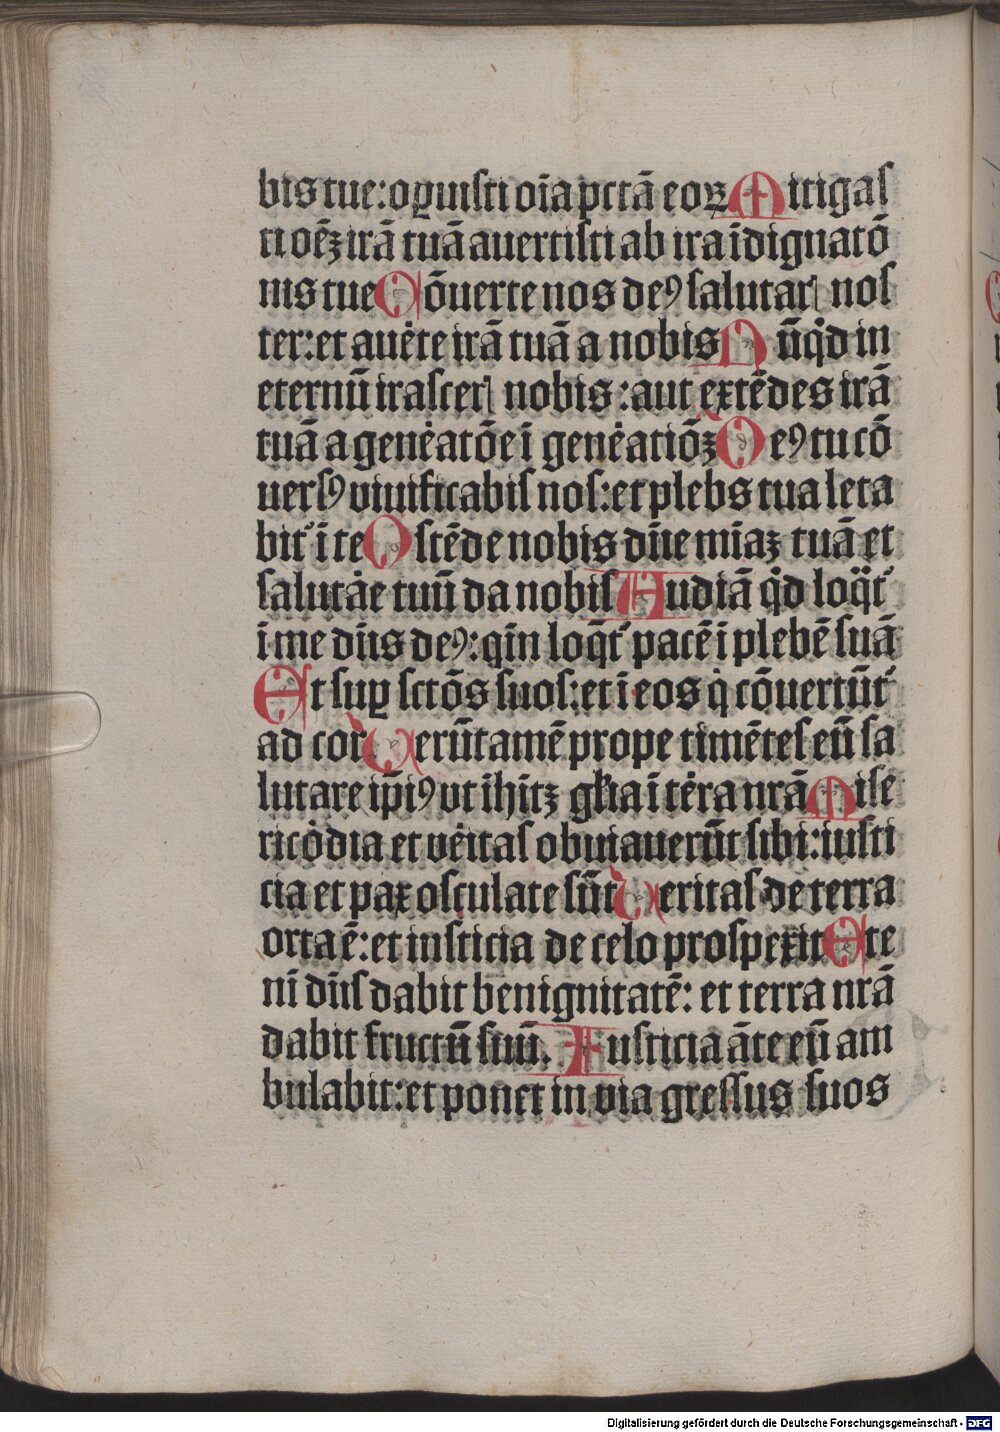 bis tue: oꝑuisti oı̄a pctā eoꝝ Mitigas
ti oēꝫ irā tuā auertisti ab ira īdignatō
nis tue Cōuerte nos deꝰ salutarꝭ nos
ter: et au̇ete irā tuā a nobis Nūq̇d in
eternū irascerꝭ nobis: aut extēdes irā
tuā a genėatōe ī genėatiōꝫ Deꝰ tu cō
uersꝰ uiuificabis nos: et plebs tua leta
bit᷑ ī te Ostēde nobis dn̄e miaꝫ tuā et
salutāe tuū da nobis Audiā q̇d loq̈t᷑
ī me dn̄s deꝰ: qm̄ loq̄t᷑ pacē ī plebē suā
Et suꝑ sctōs suos: et ī eos q̇ cōuertūt᷑
ad cor Uerūtamē prope timētes eū sa
lutare ip̄iꝰ ut īhitꝫ gl̄ia ī tėra nrā Mise
ricȯdia et vėitas obuiauerūt sibi: iusti
cia et pax osculate sūt Ueritas de terra
orta ē: et iusticia de celo prospexit Ete
nī dn̄s dabit benignitatē: et terra nrā
dabit fructū suū. Iusticia āte eū am
bulabit: et ponet in via gressus suos
Digitalisierung gefördert durch die Deutsche Forschungsgemeinschaft - DFG